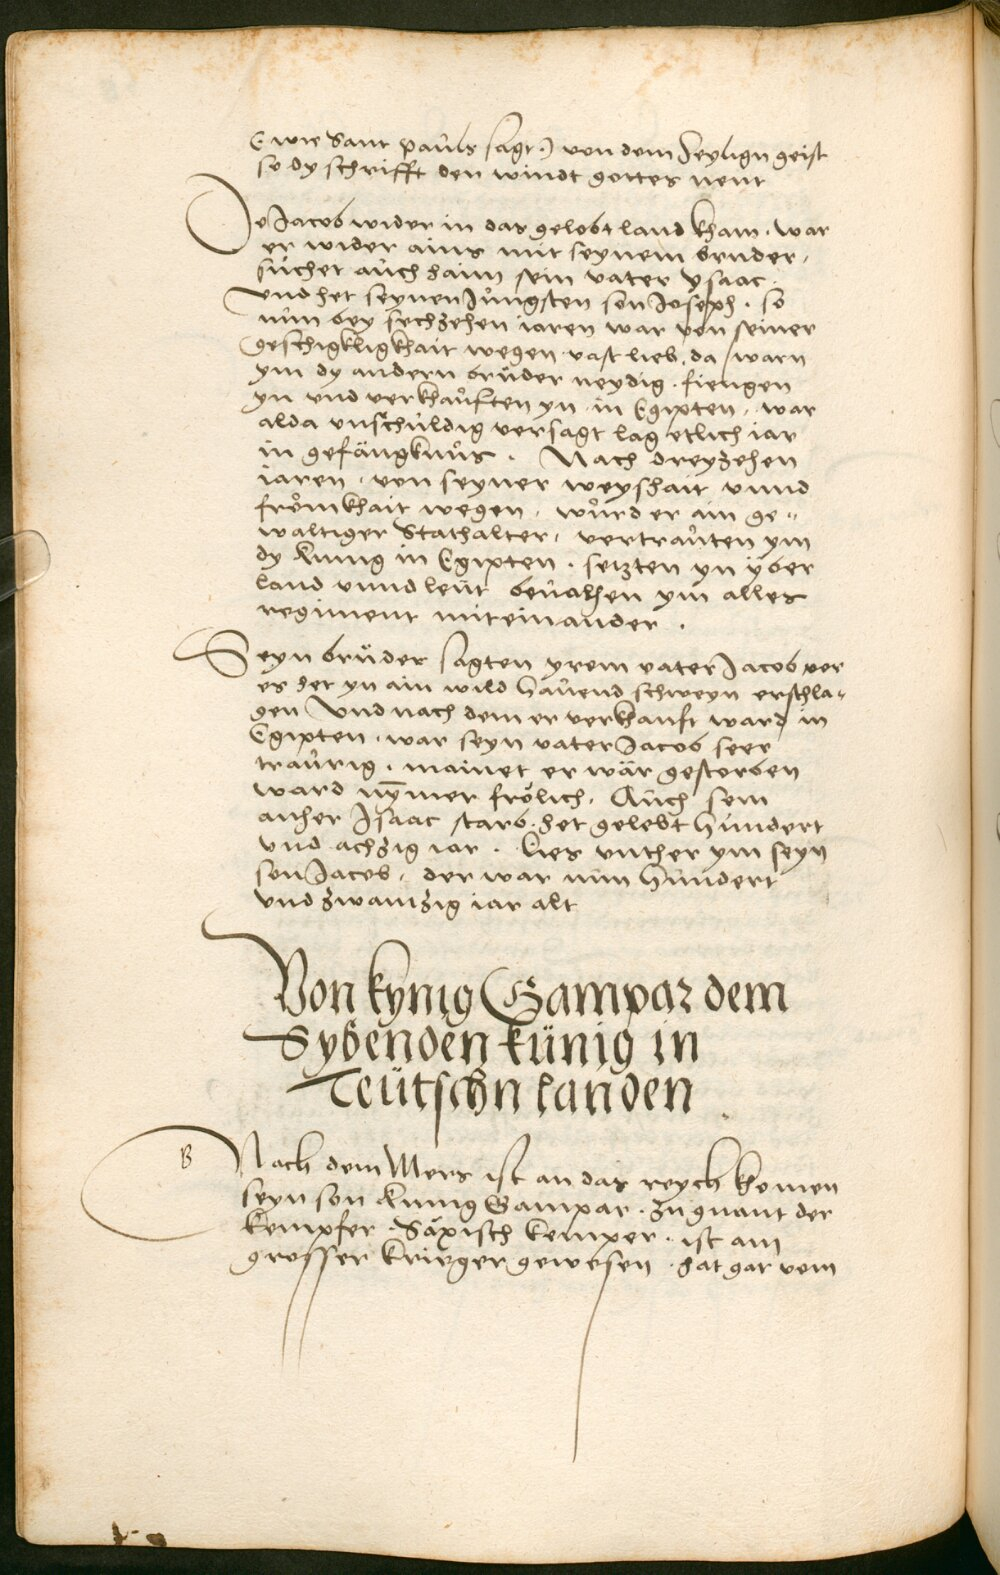 ( wie Sant pauls sagt ) von dem Heylign geist
so dy schrifft den windt gottes nent
Do Jacob wider in das gelobt land kham . war
er wider ains mit seynem bruder ,
sůchet aůch haim sein vater Ysaac .
Vnd het seynen Jůngsten son Joseph . so
nůn bey sechzehen iaren war von seiner
geschigkligkhait wegen vast lieb . da warn
ym dy andern brůder neydig . fiengen
yn vnd verkhaůften yn in Egipten , war
alda vnschůldig versagt lag etlich iar
in gefängknůs . Nach dreyzehen
iaren . von seyner weyshait vnnd
frömkhait wegen , wůrd er ain ge„
waltiger Stathalter , vertraůten ym
dy Kunig in Egipten . setzten yn ÿber
land vnnd leüt beůalhen ym alles
regiment miteinander .
Seyn brůder sagten yrem vater Jacob vor
es het yn ain wild Haůend schweyn erschla„
gen Vnd nach dem er verkhauft ward in
Egipten . war seyn vater Jacob seer
traůrig . mainet er wär gestorben
ward nymer frölich . Aůch sein
anher Isaac starb . het gelebt Hůndert
vnd achzig iar . Lies vnther ym seyn
son Jacob , der war nůn Hůndert
vnd zwantzig iar alt
Von kynig Gampar dem
Sybenden künig in
Teütschn landen
B
Nach dem Mers ist an das reych khomen
seyn son Kunig Gampar . zu gnant der
Kempfer . Säxisch Kemper . ist ain
grosser Krieger gewesen . hat gar vom